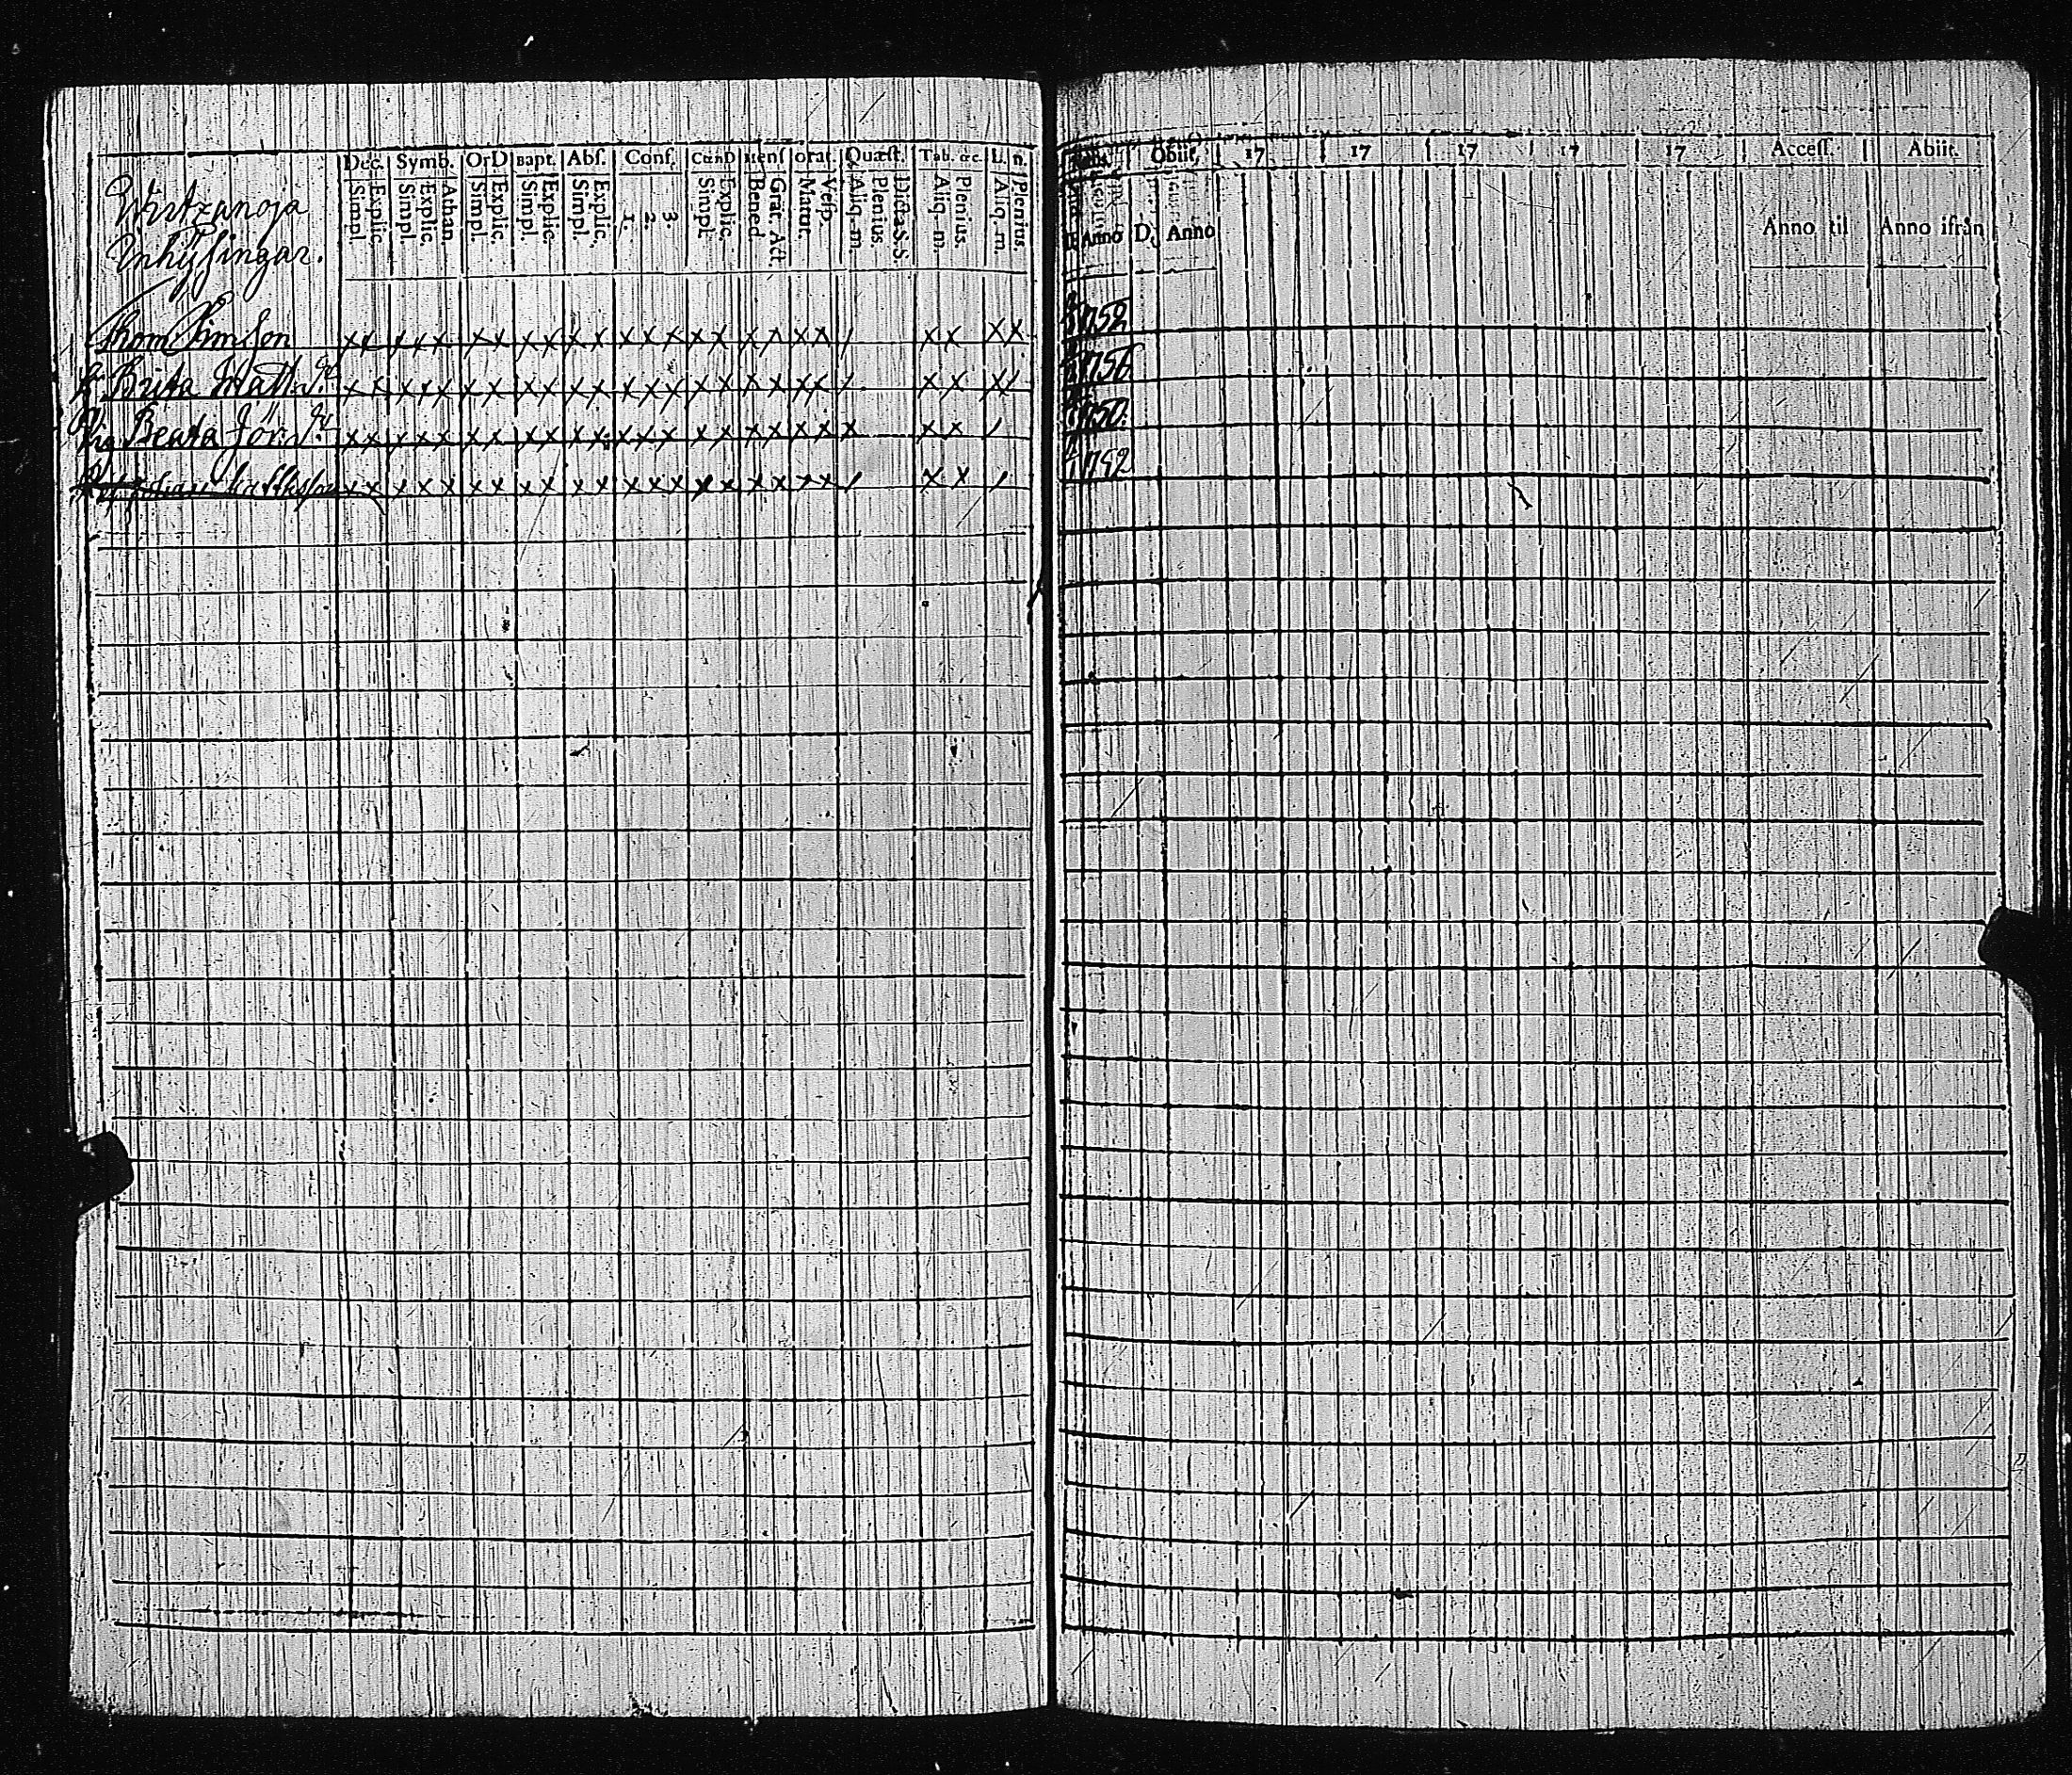 Dec. Symb. OrD Bapt. Abs. Conf. CœnD Mens Orat. Quæst. Tab. œc. L. n.
Simpl. Explic. Simpl. Explic. Athan. Simpl. Explic. Simpl. Explic. Simpl. Explic. 1. 2. 3. Simpl. Explic. Bened. Grat. Act Matut. Vesp. Aliq. m. Plenius Dicta S. S. Aliq. m. Plenius. Aliq. m. Plenius.
Obiit. 17 17 17 17 17 Access. Abiit.
Anno D. Anno Anno til Anno ifrån
Inhysingar.
Thom Simson x x x x x x x x x x x x x x x x x x x x / x x x x 1752
h. Brita Matts dr x x x x x x x x x x x x x x x x x x x x / x x x / 1756
Beata Jör. dr x x x x x x x x x x x x x x x x x x x x x x x / 1750.
x x x x x x x x x x x x x x x x x x x x / x x / 1742